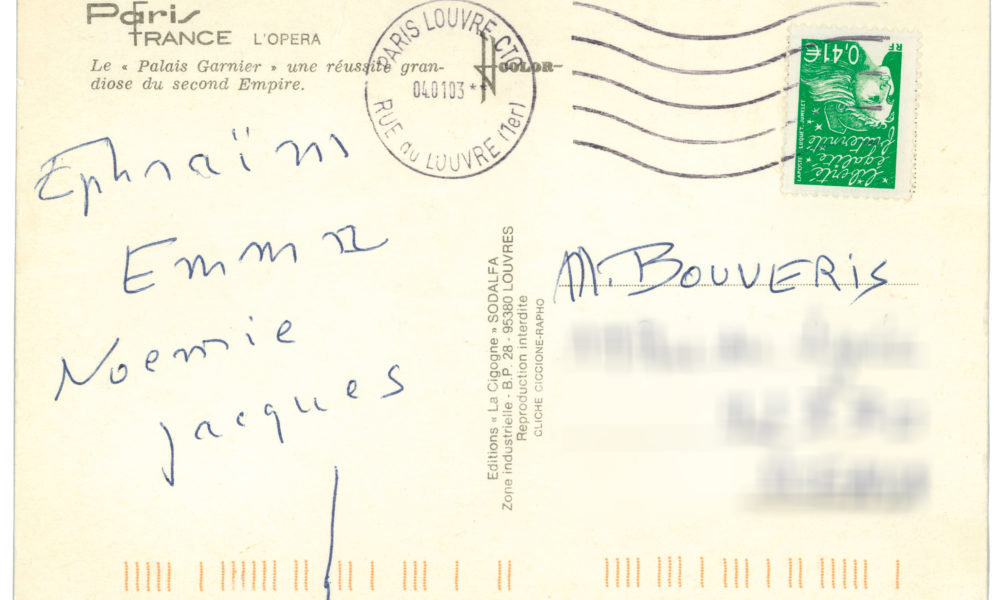 Paris
FRANCE L'OPERA
Le « Palais Garnier » une réussite gran-
diose du second Empire.
COLOR
PARIS LOUVRE CTC
040103 **
RUE du LOUVRE (1er)
RF
0,41€
liberté
égalité
fraternité
LAPOSTE LUQUET, JUMELET
Ephraïm
Emma
Noemie
Jacques
Editions « La Cigogne » SODALFA
Zone industrielle - B.P. 28 - 95380 LOUVRES
Reproduction interdite
CLICHE CICCIONE-RAPHO
M. BOUVERIS